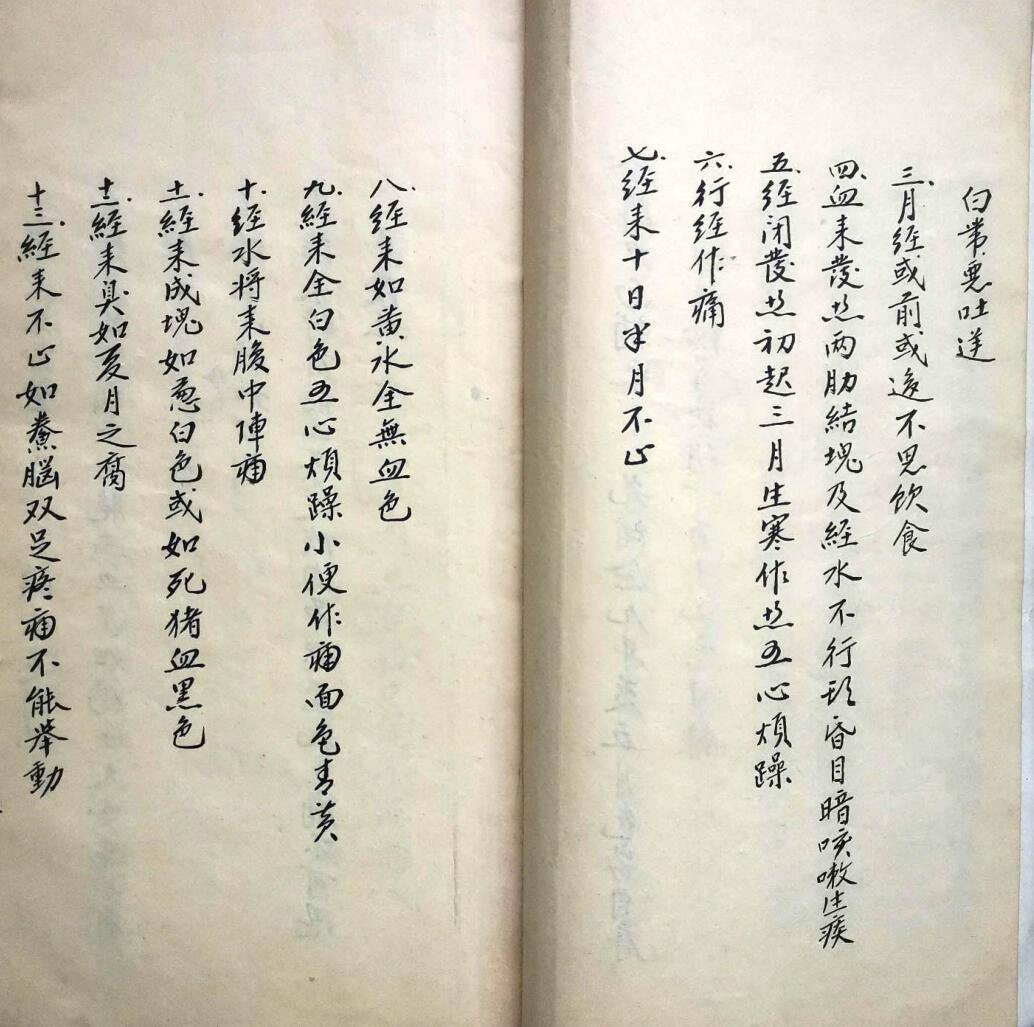 白常惡吐逆
三、月經或前或後不思飲食
四、血来發热两肋結塊及經水不行頭昏目暗咳嗽生痰
五、經闭發热初起三月生寒作热五心煩躁
六、行經作痛
七、經来十日半月不止
八、經来如黄水全無血色
九、經来全白色五心煩躁小便作痛面色青黄
十、經水将来腹中陣痛
十一、經来成塊如葱白色或如死猪血黑色
十二、經来臭如夏月之腐
十三、經来不止如鱉脳双足疼痛不能举動